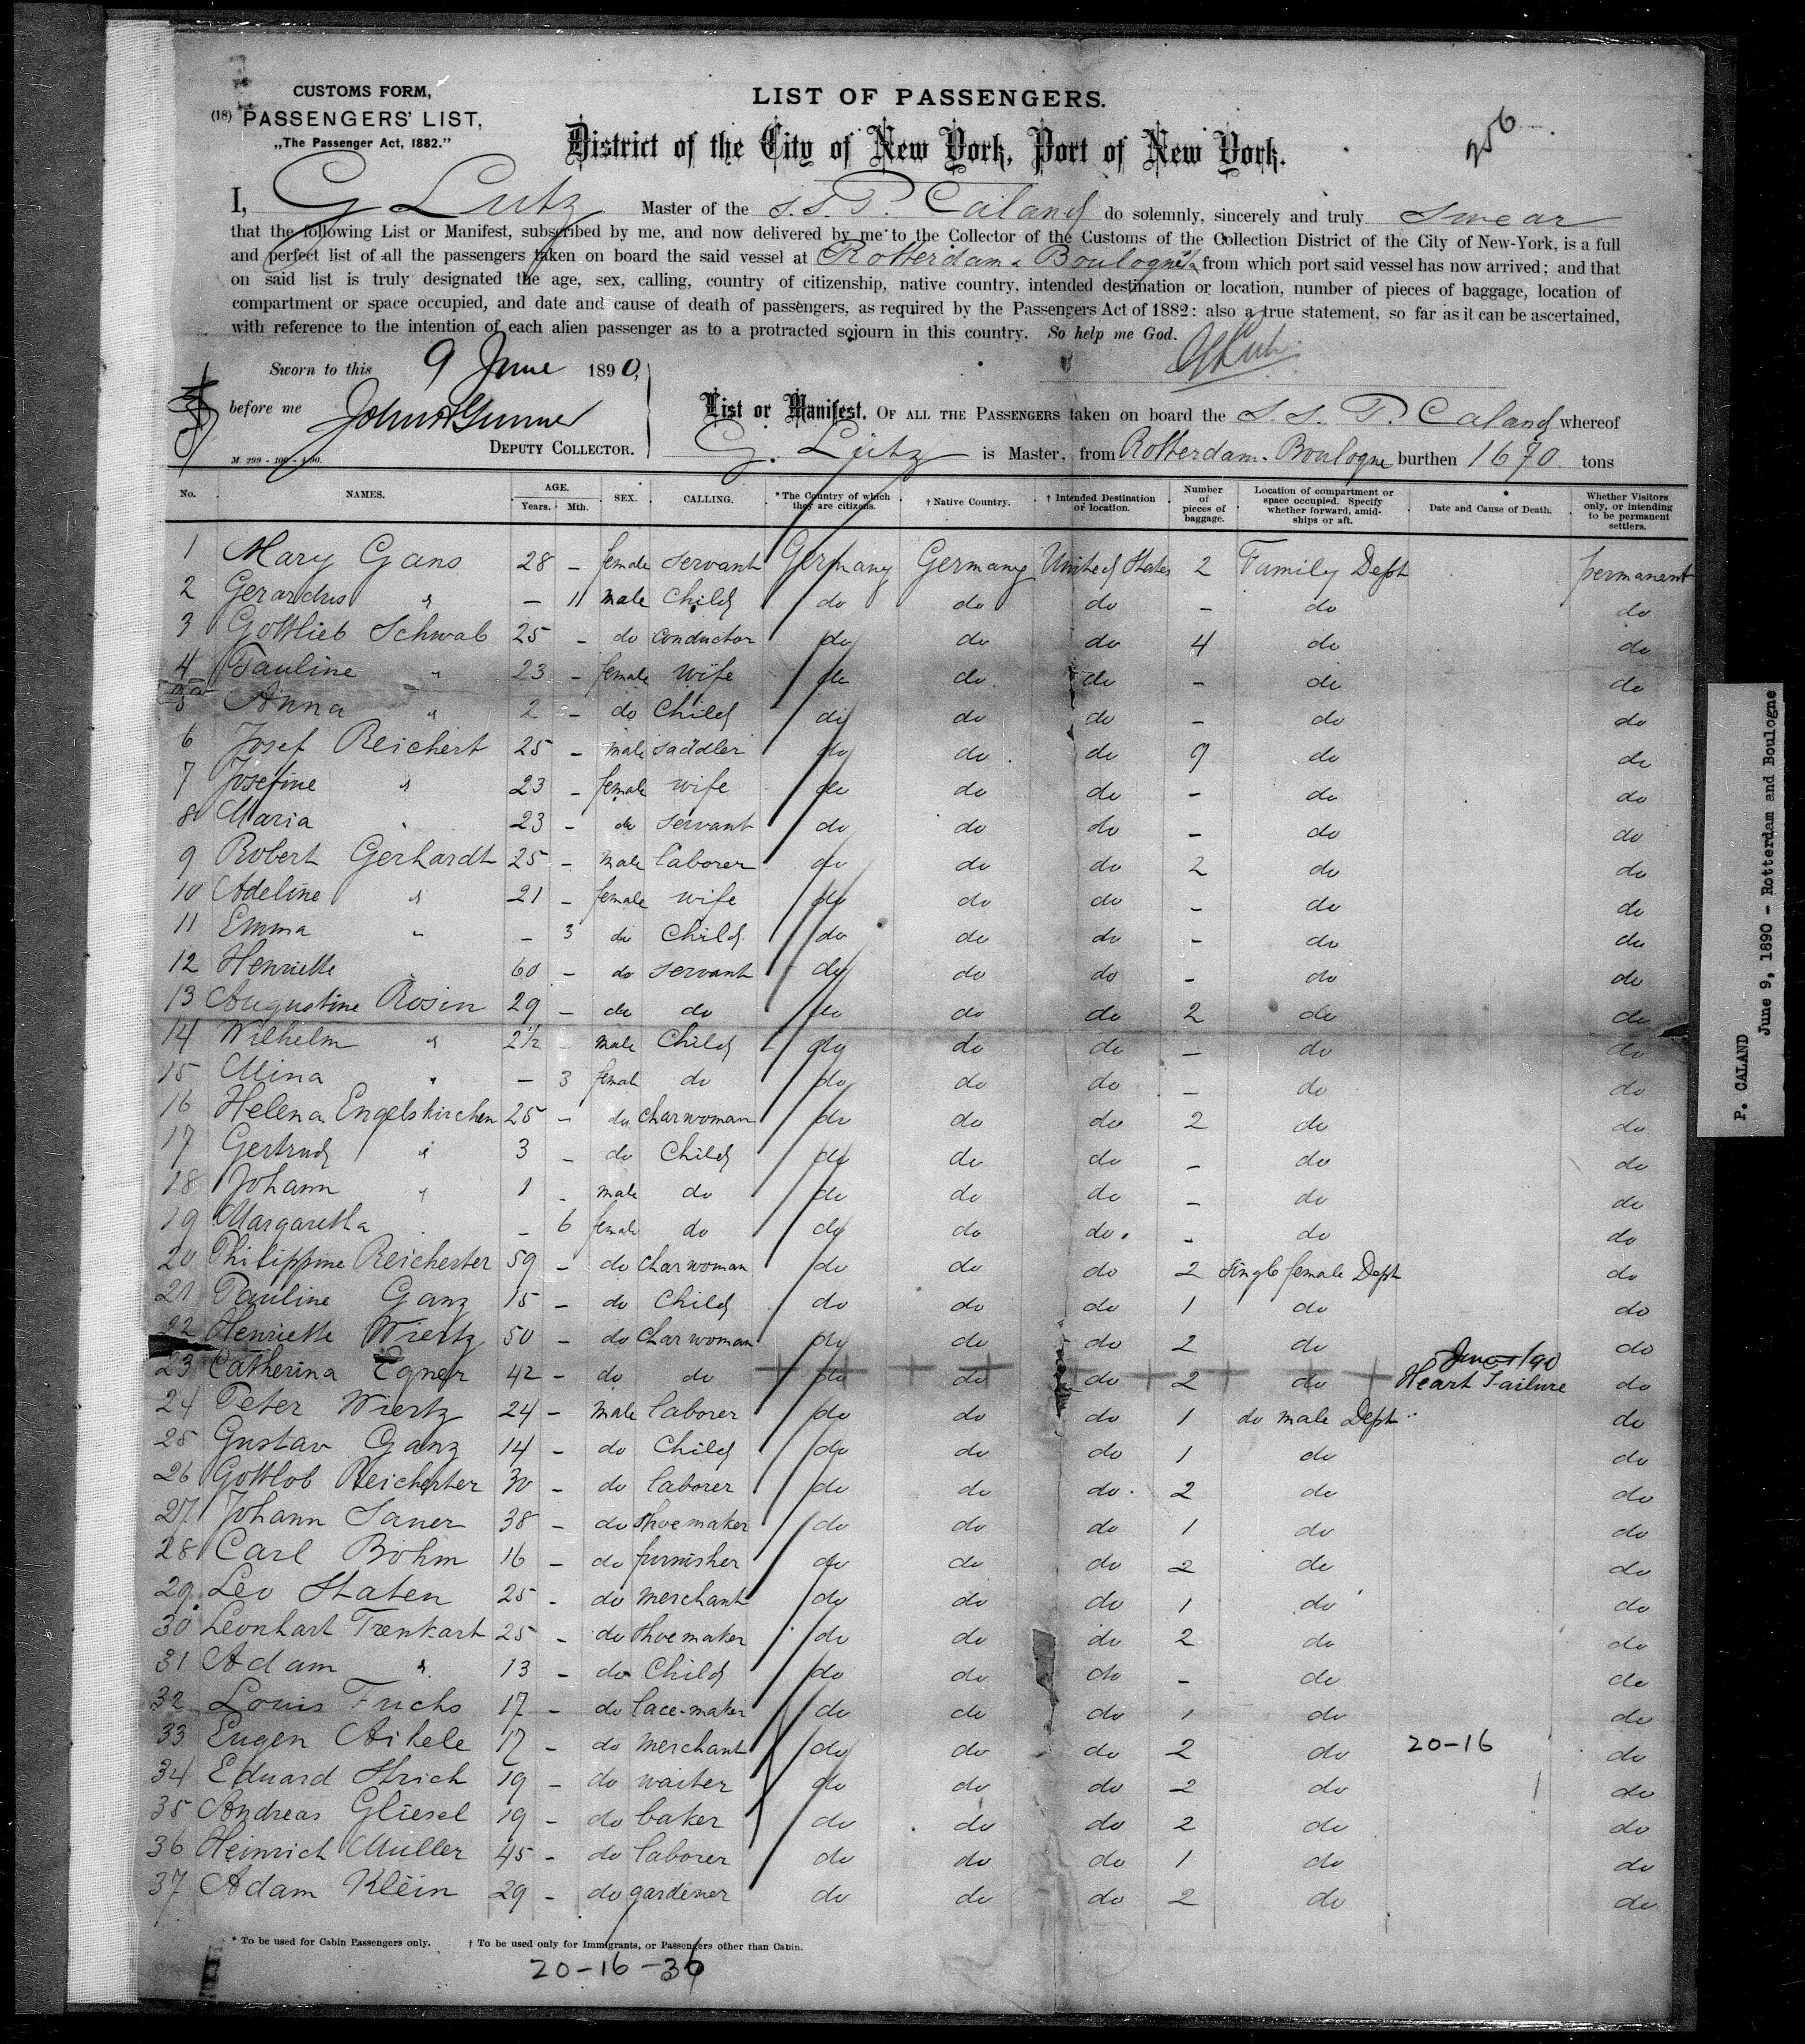 CUSTOMS FORM,
(18) PASSENGERS' LIST,
„The Passenger Act, 1882."
LIST OF PASSENGERS.
256
District of the City of New York, Port of New York.
I, G Lutz Master of the S.S. P. Caland do solemnly, sincerely and truly Swear
that the following List or Manifest, subscribed by me, and now delivered by me to the Collector of the Customs of the Collection District of the City of New-York, is a full
and perfect list of all the passengers taken on board the said vessel at Rotterdam & Boulogne from which port said vessel has now arrived; and that
on said list is truly designated the age, sex, calling, country of citizenship, native country, intended destination or location, number of pieces of baggage, location of
compartment or space occupied, and date and cause of death of passengers, as required by the Passengers Act of 1882: also a true statement, so far as it can be ascertained,
with reference to the intention of each alien passenger as to a protracted sojourn in this country. So help me God.
Sworn to this 9 June 1890,
before me
DEPUTY COLLECTOR.
M. 299 - 100 - 4.90.
List or Manifest, OF ALL THE PASSENGERS taken on board the S. S. P. Caland whereof
G. Lütz is Master, from Rotterdam. Boulogne burthen 1670 tons
No. NAMES. AGE. Years. Mth. SEX. CALLING. *The Country of which they are citizens. † Native Country. † Intended Destination or location. Number of pieces of baggage. Location of compartment or space occupied. Specify whether forward, amidships or aft. Date and Cause of Death. Whether Visitors only, or intending to be permanent settlers.
1 Mary Gans 28 - female servant Germany Germany United States 2 Family Dept permanent
2 Gerardus " - 11 male Child do do do - do do
3 Gottlieb Schwab 25 - do conductor do do do 4 do do
4 Pauline " 23 - female wife do do do - do do
5 Anna " 2 - do Child do do do - do do
6 Josef Reichert 25 - male saddler do do do 9 do do
7 Josefine " 23 - female wife do do do - do do
8 Maria " 23 - do servant do do do - do do
9 Robert Gerhardt 25 - male laborer do do do 2 do do
10 Adeline " 21 - female wife do do do - do do
11 Emma " - 3 do Child do do do - do do
12 Henriette 60 - do servant do do do - do do
13 Augustine Rosin 29 - do do do do do 2 do do
14 Wilhelm " 2½ - male Child do do do - do do
15 Mina " - 3 female do do do do - do do
16 Helena Engelskirchen 25 - do charwoman do do do 2 do do
17 Gertrud " 3 - do Child do do do - do do
18 Johann " 1 - male do do do do - do do
19 Margaretha - 6 female do do do do - do do
20 Philippine Reicherter 59 - do charwoman do do do 2 single female Dept do
21 Pauline Ganz 15 - do Child do do do 1 do do
22 Henriette Wiertz 50 - do charwoman do do do 2 do do
23 Catherina Egner 42 - do do do do do 2 do Heart Failure do
24 Peter Wiertz 24 - male laborer do do do 1 do male Dept do
25 Gustav Ganz 14 - do Child do do do 1 do do
26 Gottlob Reicherter 30 - do laborer do do do 2 do do
27 Johann Saner 38 - do shoemaker do do do 1 do do
28 Carl Böhm 16 - do furnisher do do do 2 do do
29 Leo Staten 25 - do merchant do do do 1 do do
30 Leonhart Trenkart 25 - do shoemaker do do do 2 do do
31 Adam " 13 - do Child do do do - do do
32 Louis Fuchs 17 - do lace-maker do do do 1 do do
33 Eugen Aikele 17 - do merchant do do do 2 do 20-16 do
34 Eduard Strich 19 - do waiter do do do 2 do do
35 Andreas Gliesel 19 - do baker do do do 2 do do
36 Heinrich Müller 45 - do laborer do do do 1 do do
37 Adam Klein 29 - do gardener do do do 2 do do
* To be used for Cabin Passengers only. † To be used only for Immigrants, or Passengers other than Cabin.
20-16-36
P. CALAND
June 9, 1890 - Rotterdam and Boulogne